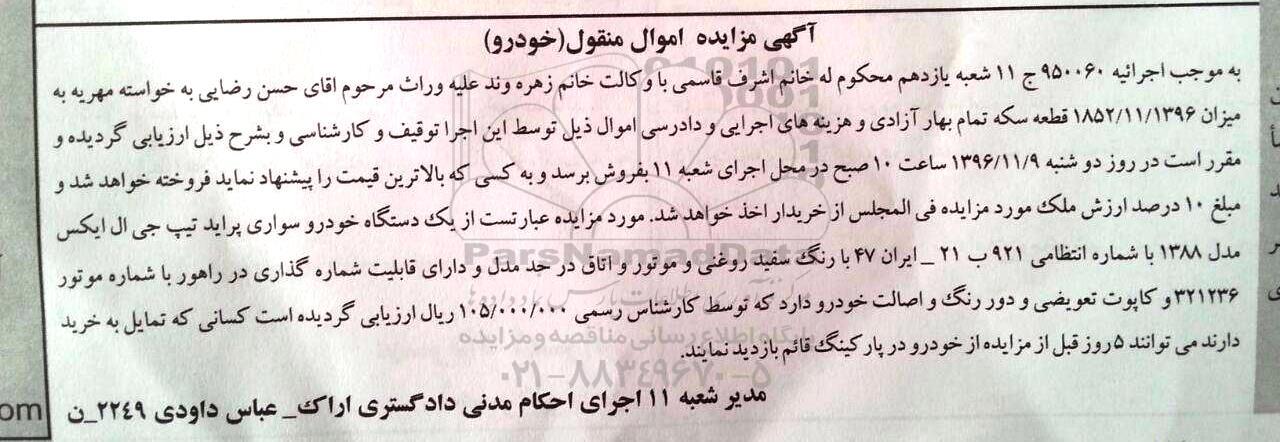 آگهی مزایده اموال منقول(خودرو)
به موجب اجرائیه ۹۵۰۰۶۰ ج ۱۱ شعبه یازدهم محکوم له خانم اشرف قاسمی با وکالت خانم زهره وند علیه وراث مرحوم اقای حسن رضایی به خواسته مهریه به
میزان ۱۸۵۲/۱۱/۱۳۹۶ قطعه سکه تمام بهار آزادی و هزینه های اجرایی و دادرسی اموال ذیل توسط این اجرا توقیف و کارشناسی و بشرح ذیل ارزیابی گردیده و
مقرر است در روز دو شنبه ۱۳۹۶/۱۱/۹ ساعت ۱۰ صبح در محل اجرای شعبه ۱۱ بفروش برسد و به کسی که بالاترین قیمت را پیشنهاد نماید فروخته خواهد شد و
مبلغ ۱۰ درصد ارزش ملک مورد مزایده فی المجلس از خریدار اخذ خواهد شد. مورد مزایده عبارتست از یک دستگاه خودرو سواری پراید تیپ جی ال ایکس
مدل ۱۳۸۸ با شماره انتظامی ۹۲۱ ب ۲۱ _ ایران ۴۷ با رنگ سفید روغنی و موتور و اتاق در حد مدل و دارای قابلیت شماره گذاری در راهور با شماره موتور
۳۲۱۲۳۶ و کاپوت تعویضی و دور رنگ و اصالت خودرو دارد که توسط کارشناس رسمی ۱۰۵/۰۰۰/۰۰۰ ریال ارزیابی گردیده است کسانی که تمایل به خرید
دارند می توانند ۵ روز قبل از مزایده از خودرو در پارکینگ قائم بازدید نمایند.
مدیر شعبه ۱۱ اجرای احکام مدنی دادگستری اراک_ عباس داودی ۲۲۴۹_ن
ParsNamadData
پایگاه اطلاع رسانی مناقصه و مزایده
۰۲۱-۸۸۳۴۹۶۷۰-۵
om